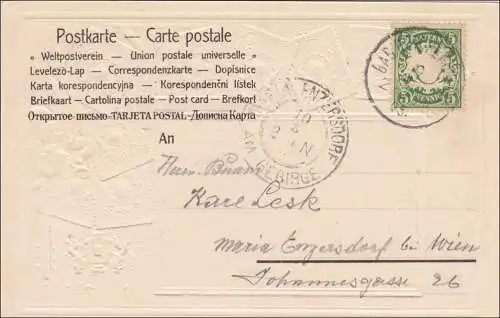 Postkarte — Carte postale
„ Weltpostverein — Union postale universelle "
Levelezö-Lap — Correspondenzkarte — Dopisnice
Karta korespondencyjna — Korespondenčni listek
Briefkaart — Cartolina postale — Post card — Brefkort
Открытое письмо — TARJETA POSTAL — Дописна Карта
An
Herrn
Karl Lesk
Maria Enzersdorf bei Wien
Johannesgasse 26
ENZERSDORF
AM GEBIRGE
BAYERN
5 PFENNIG 5